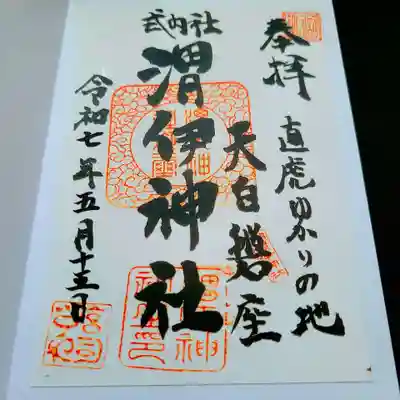 奉拝
直虎ゆかりの地
天白磐座
式内社
渭伊神社
令和七年五月十三日